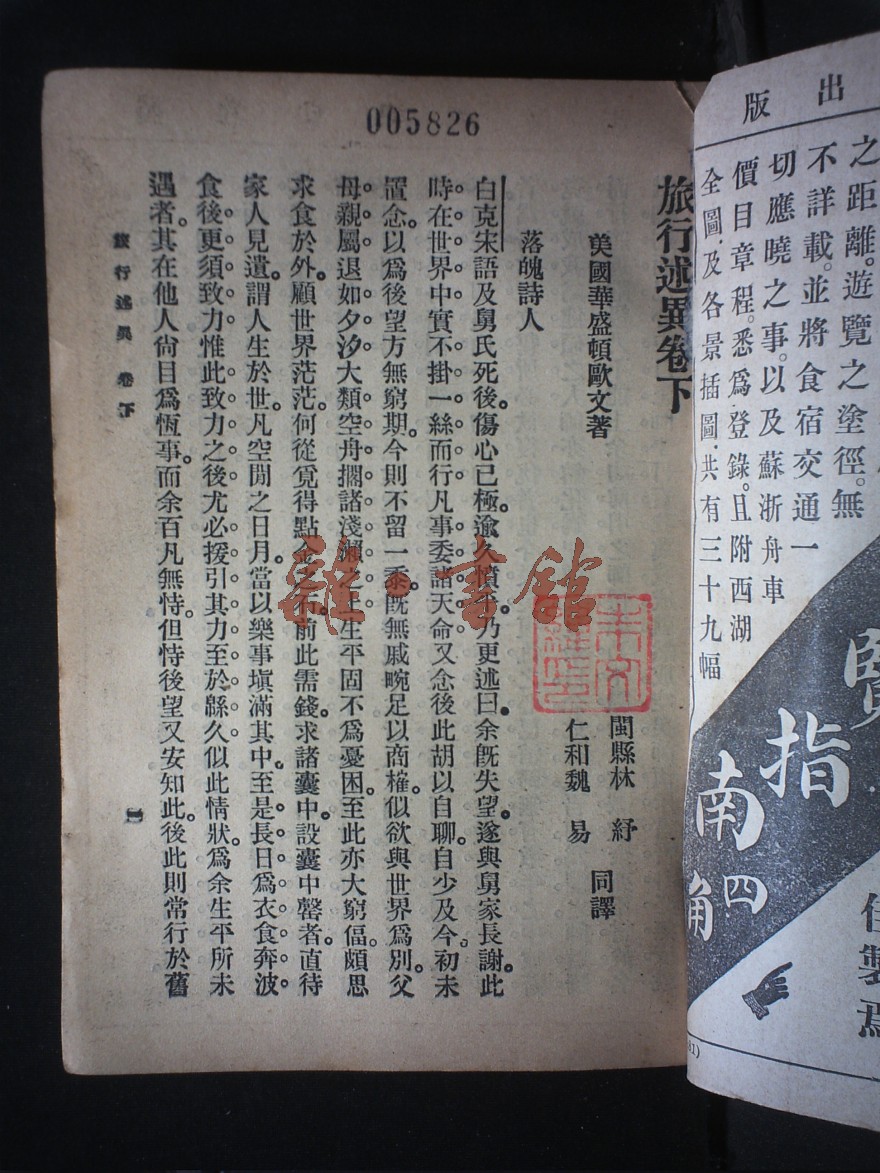 005826
旅行述異卷下
美國華盛頓歐文著
閩縣林 紓
仁和魏 易
同譯
落魄詩人
白克宋語及舅氏死後。傷心已極。逾久憤合。乃更述曰。余既失望。遂與舅家長謝。此
時在世界中實不掛一絲而行。凡事委諸天命。又念後此胡以自聊。自少及今。初未
置念。以爲後望方無窮期。今則不留一黍。既無戚畹足以商榷。似欲與世界爲別。父
母親屬。退如夕汐。大類空舟擱諸淺瀨之上。生平固不爲憂困。至此亦大窮偪。頗思
求食於外。顧世界茫茫。何從覓得點金之石。前此需錢。求諸囊中。設囊中罄者。直待
家人見遺。謂人生於世。凡空閒之日月。當以樂事塡滿其中。至是長日爲衣食奔波。
食後更須致力。惟此致力之後。尤必援引其力至於緜久。似此情狀。爲余生平所未
遇者。其在他人尙目爲恆事。而余百凡無恃。但恃後望。又安知此。後此則常行於舊
旅行述異 卷下
一
雜·書館
出版
之距離。遊覽之塗徑。無
不詳載。並將食宿交通一
切應曉之事。以及蘇浙舟車
價目章程。悉爲登錄。且附西湖
全圖。及各景插圖。共有三十九幅
指南
四角